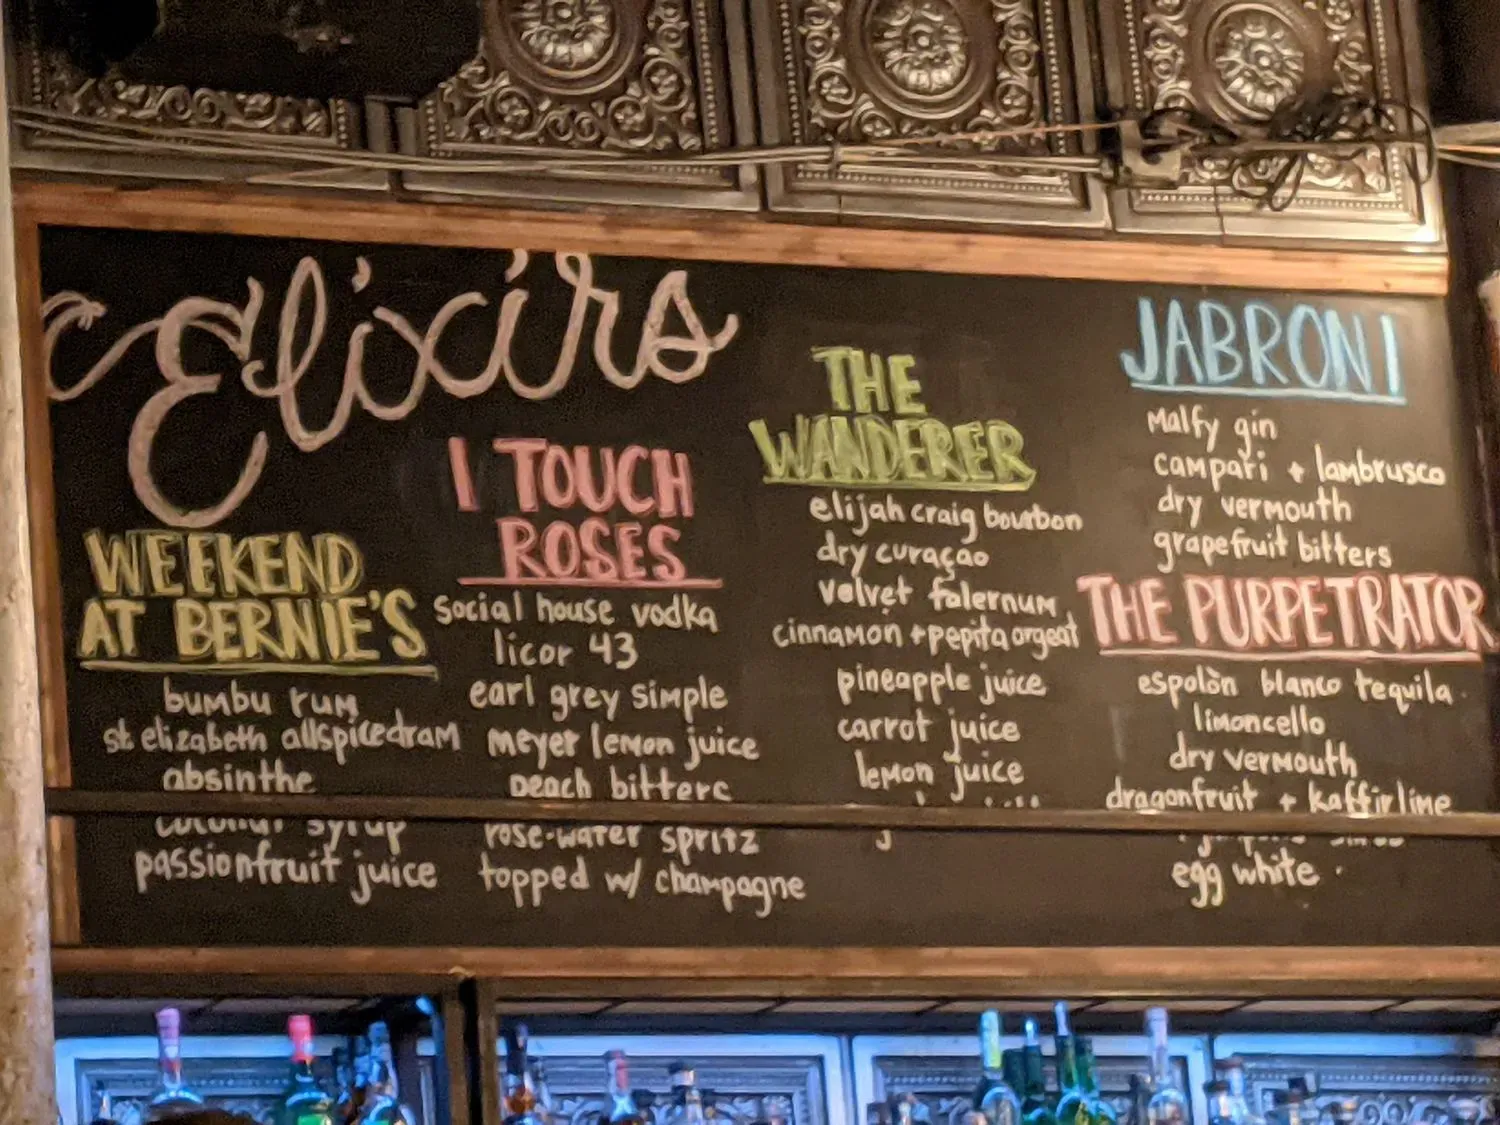 Elixirs
WEEKEND
AT BERNIE'S
bumbu rum
st. elizabeth allspice dram
absinthe
coconut syrup
passionfruit juice
I TOUCH
ROSES
social house vodka
licor 43
earl grey simple
meyer lemon juice
peach bitters
rose-water spritz
topped w/ champagne
THE
WANDERER
elijah craig bourbon
dry curaçao
velvet falernum
cinnamon + pepita orgeat
pineapple juice
carrot juice
lemon juice
JABRONI
Malfy gin
campari + lambrusco
dry vermouth
grapefruit bitters
THE PURPETRATOR
espolòn blanco tequila
limoncello
dry vermouth
dragonfruit + kaffir lime
egg white